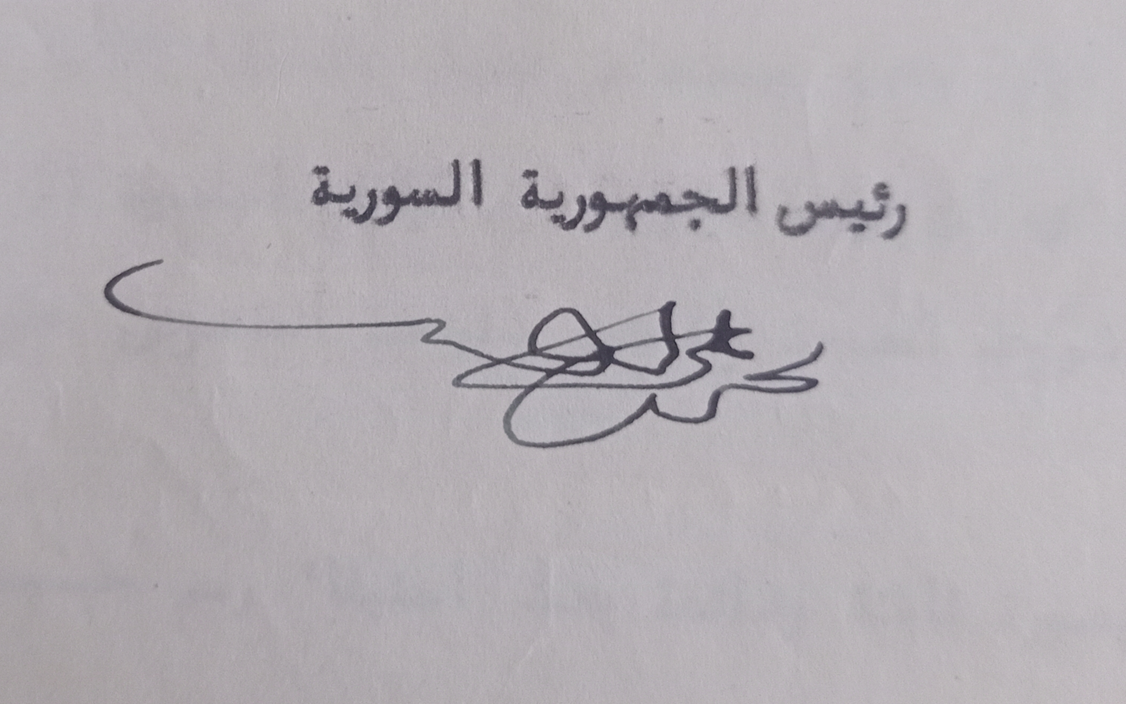 رئيس الجمهورية السورية